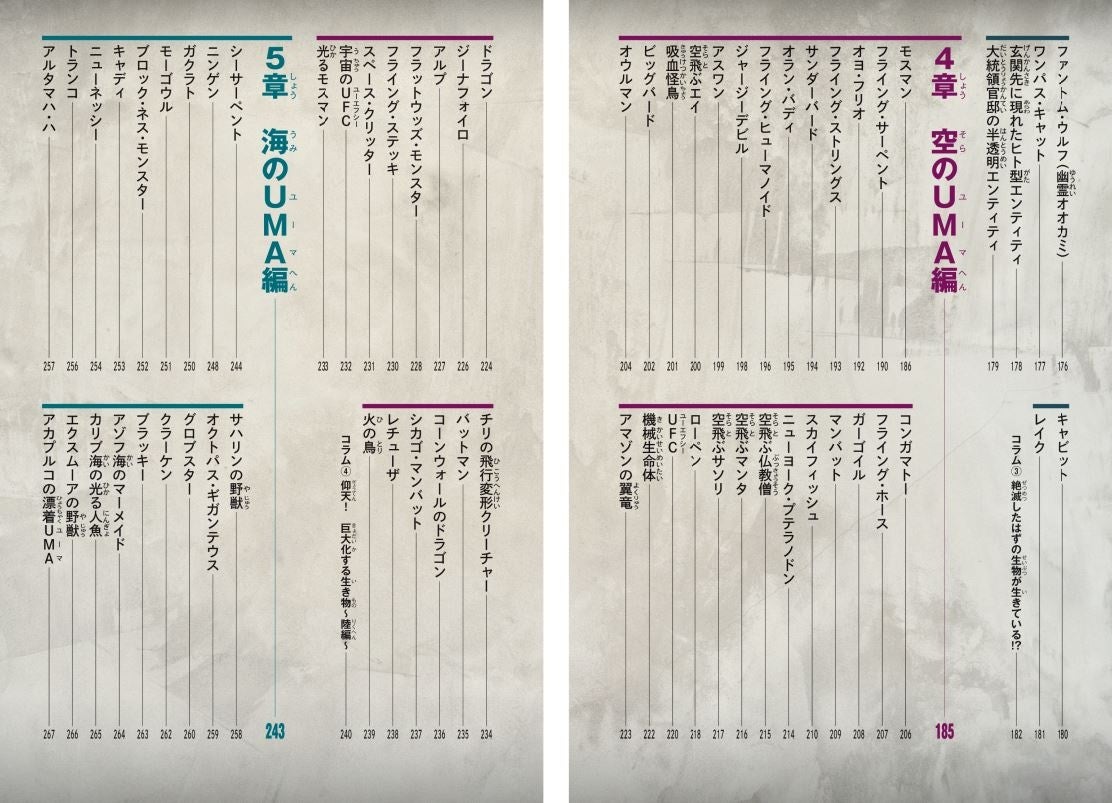 ファントム・ウルフ(幽霊オオカミ) 176
ワンパス・キャット 177
玄関先に現れたヒト型エンティティ 178
大統領官邸の半透明エンティティ 179
キャビット 180
レイク 181
コラム③ 絶滅したはずの生物が生きている!? 182
4章 空のUMA編 185
モスマン 186
フライング・サーペント 190
オヨ・フリオ 192
フライング・ストリングス 193
サンダーバード 194
オラン・バディ 195
フライング・ヒューマノイド 196
ジャージーデビル 198
アスワン 199
空飛ぶエイ 200
吸血怪鳥 201
ビッグバード 202
オウルマン 204
コンガマトー 206
フライング・ホース 207
ガーゴイル 208
マンバット 209
スカイフィッシュ 210
ニューヨーク・プテラノドン 214
空飛ぶ仏教僧 215
空飛ぶマンタ 216
空飛ぶサソリ 217
ローペン 218
UFC 220
機械生命体 222
アマゾンの翼竜 223
ドラゴン 224
ジーナフォイロ 226
アルプ 227
フラットウッズ・モンスター 228
フライング・ステッキ 230
スペース・クリッター 231
宇宙のUFC 232
光るモスマン 233
チリの飛行変形クリーチャー 234
バットマン 235
コーンウォールのドラゴン 236
シカゴ・マンバット 237
レチューザ 238
火の鳥 239
コラム④ 仰天! 巨大化する生き物~陸編~ 240
5章 海のUMA編 243
シーサーペント 244
ニンゲン 248
ガクラト 250
モーゴウル 251
ブロック・ネス・モンスター 252
キャディ 253
ニューネッシー 254
トランコ 256
アルタマハ・ハ 257
サハリンの野獣 258
オクトパス・ギガンテウス 259
グロブスター 260
クラーケン 262
ブラッキー 263
アゾフ海のマーメイド 264
カリブ海の光る人魚 265
エクスムーアの野獣 266
アカプルコの漂着UMA 267